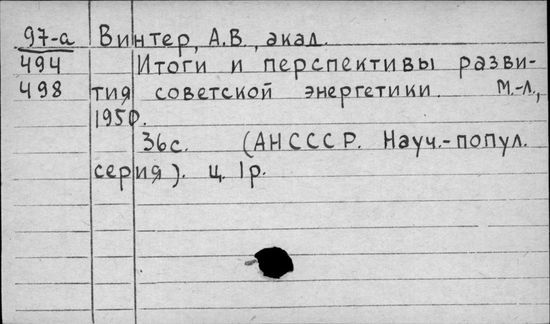 97-а Винтер, А.В., акад.
494 Итоги и перспективы разви-
498 тия советской энергетики. М.-Л.,
1950.
36с. (АН СССР. Науч.-попул.
серия). Ц. 1р.